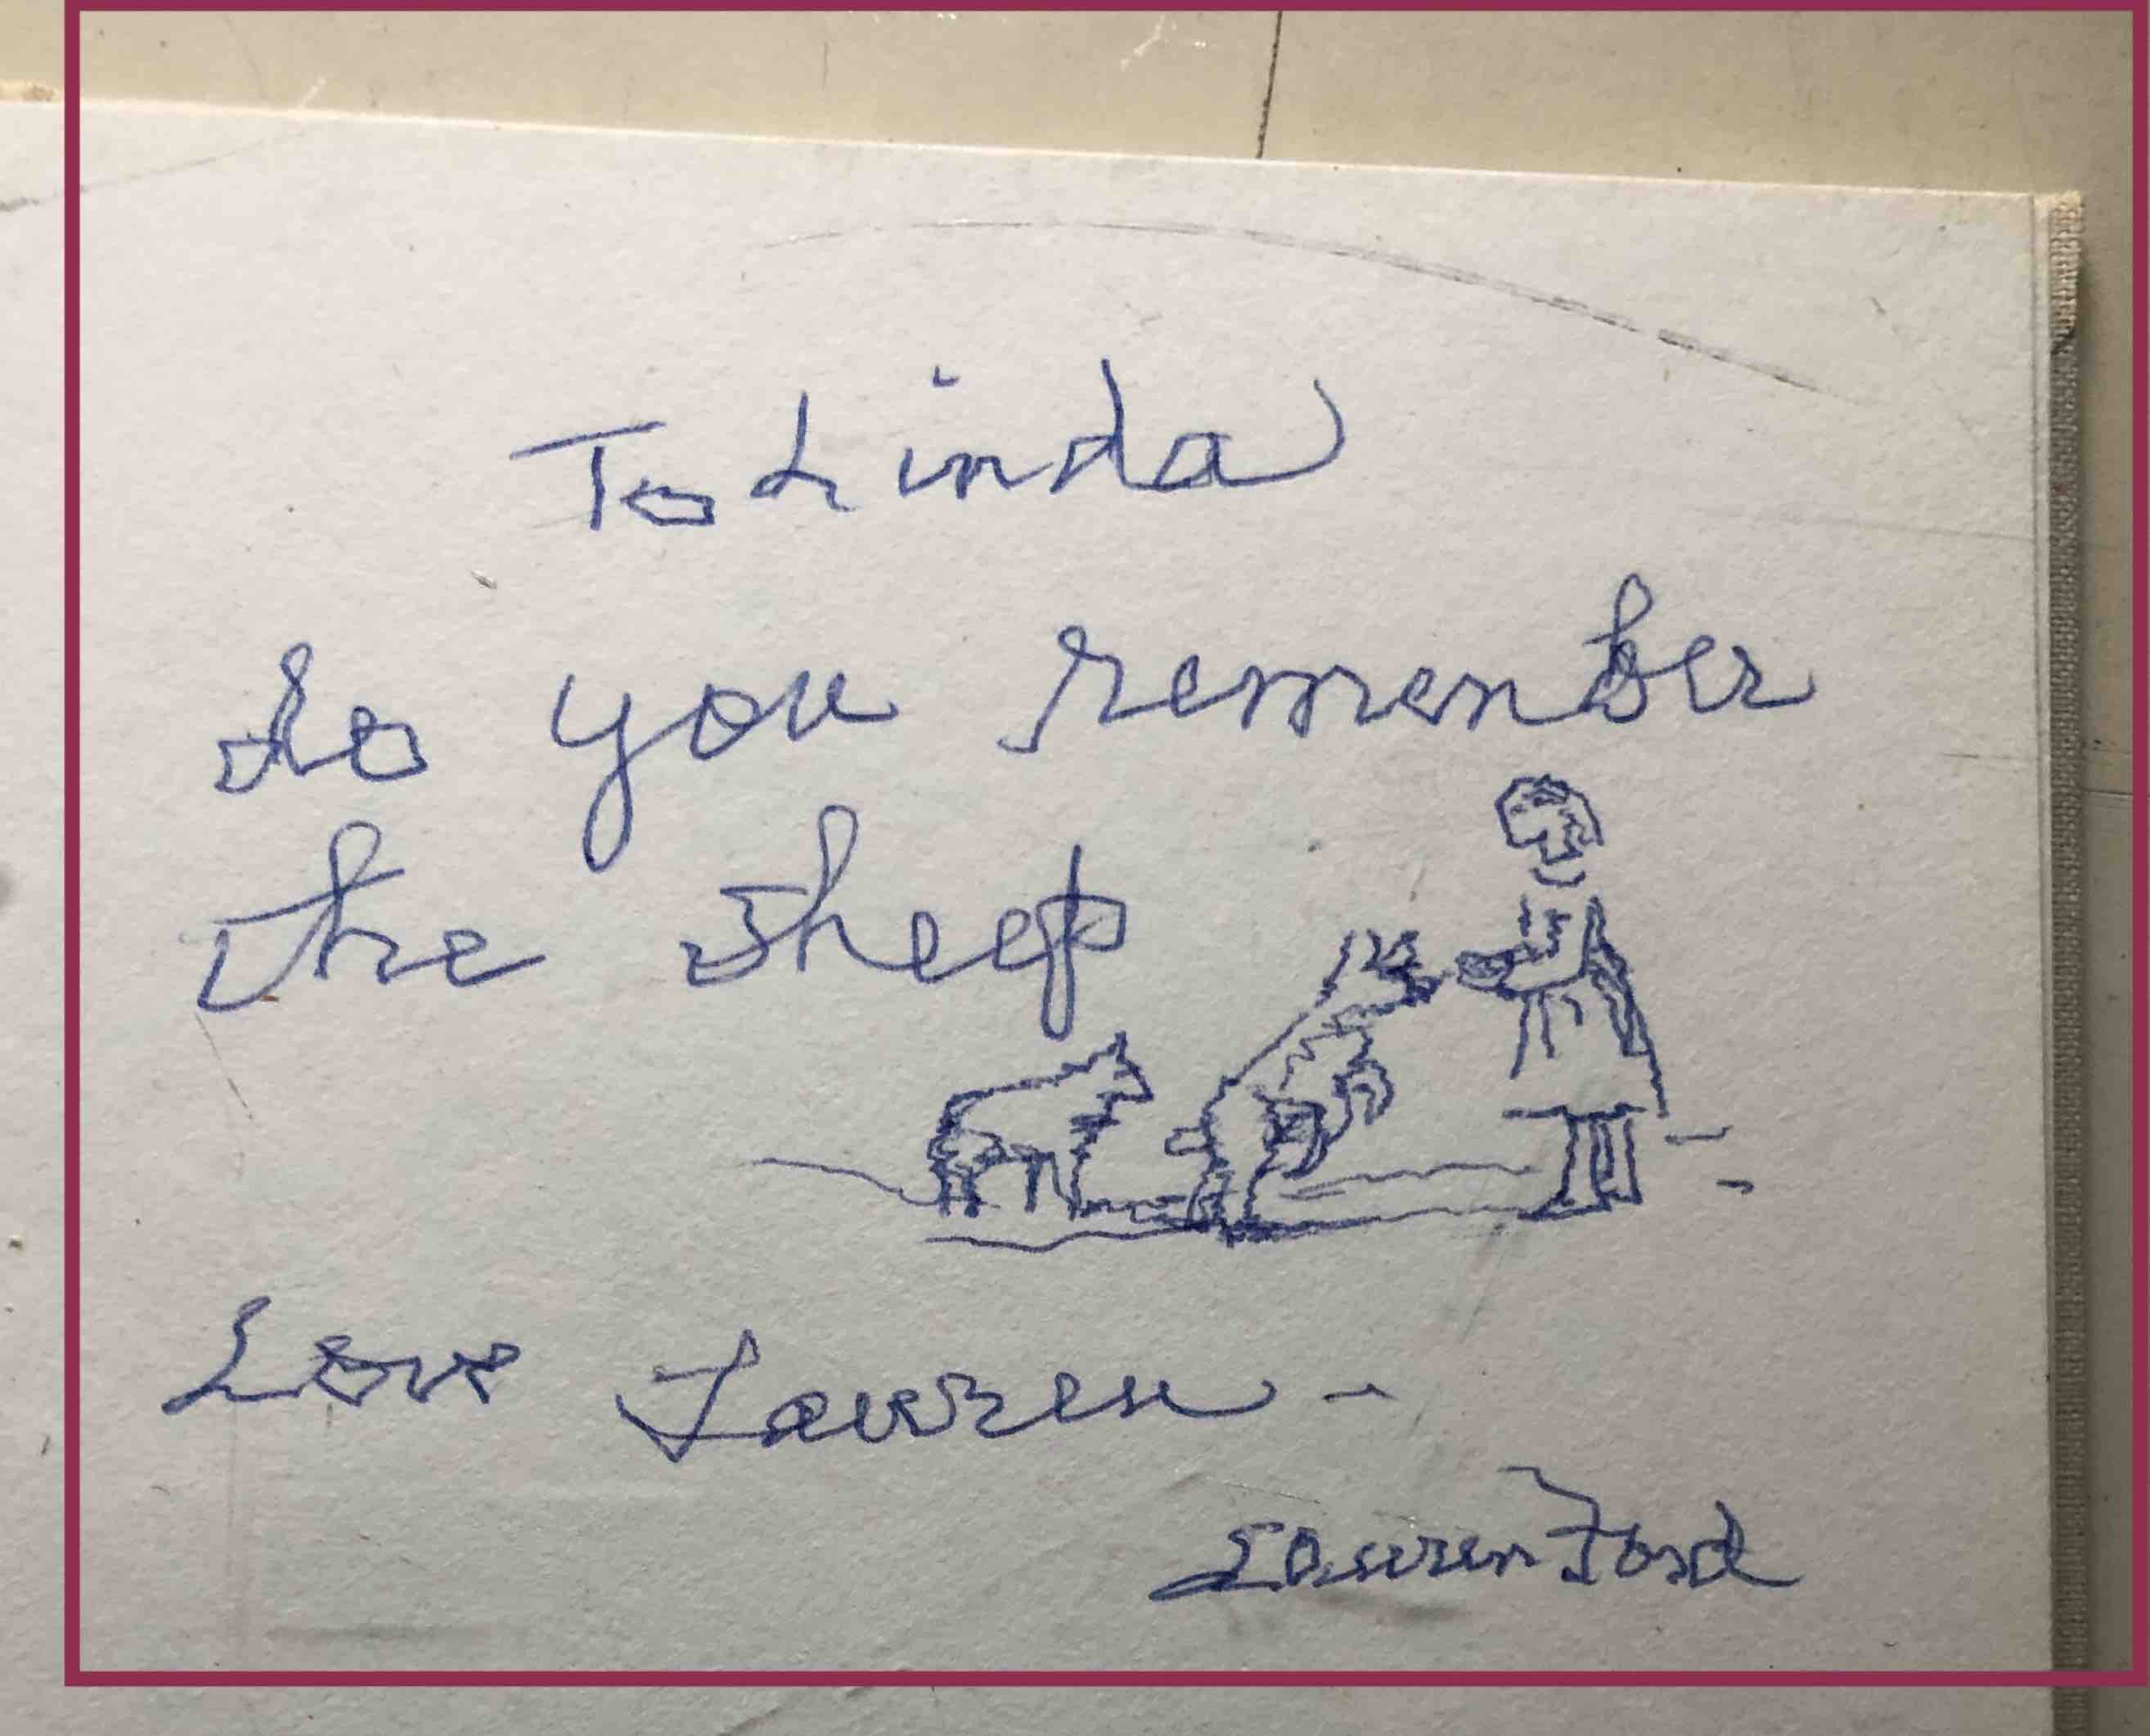 To Linda
do you remember
the sheep
Love Lauren -
Lauren Ford